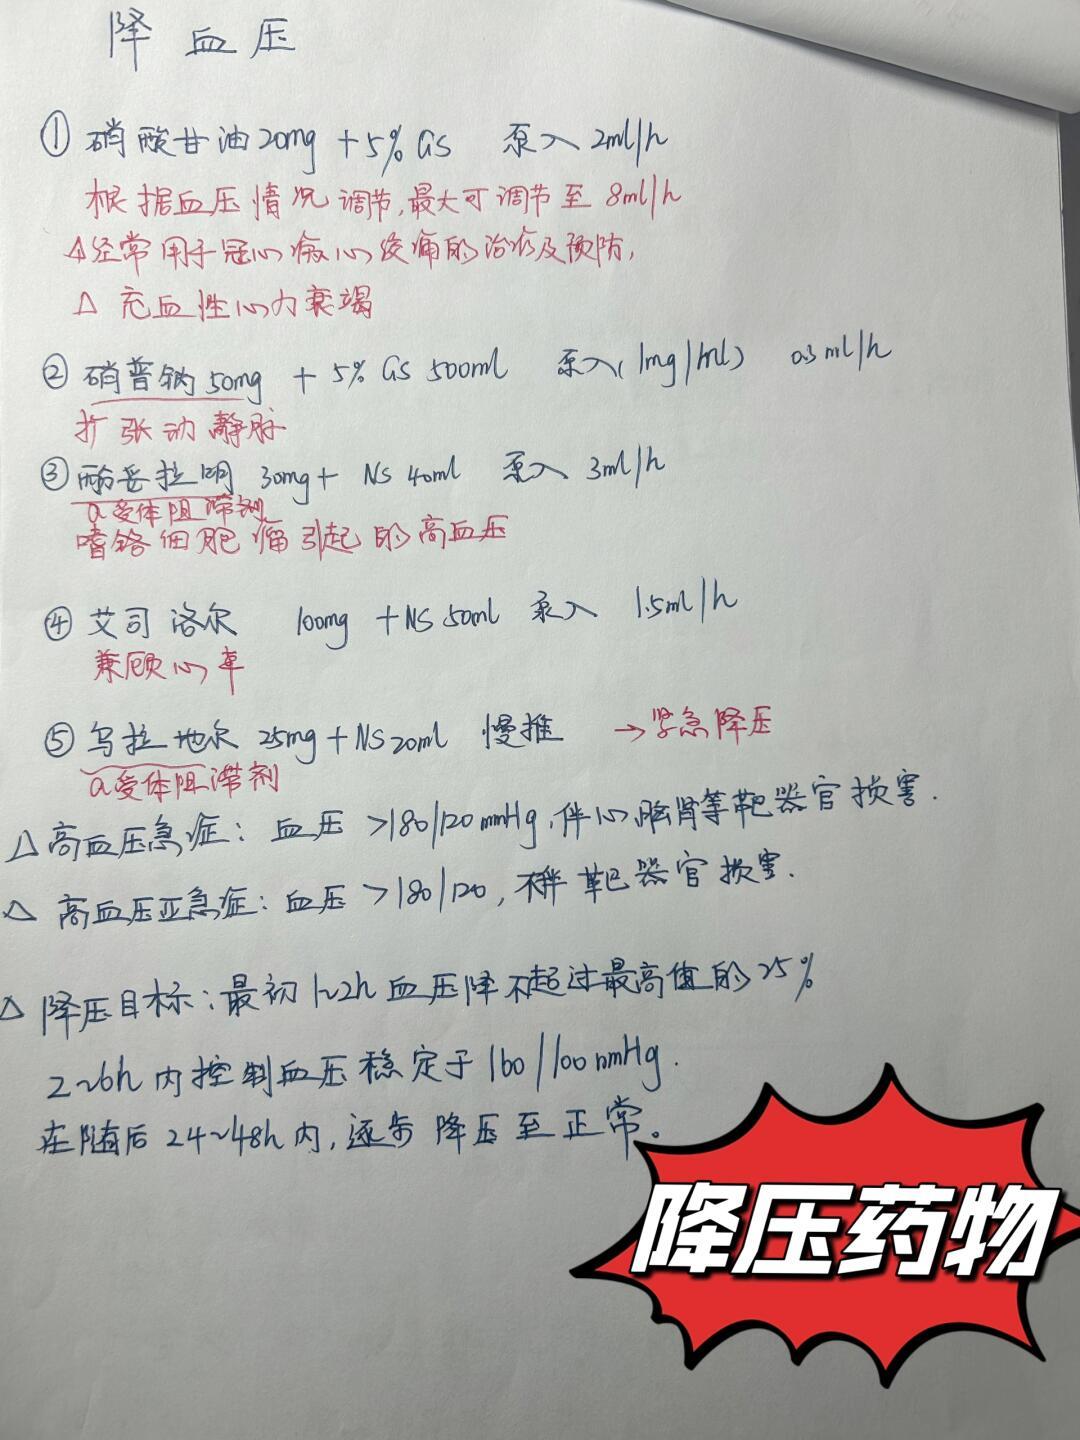 降血压
① 硝酸甘油20mg +5% GS 泵入 2ml/h
根据血压情况调节,最大可调节至 8ml/h
△经常用于冠心病心绞痛的治疗及预防,
△ 充血性心力衰竭
② 硝普钠 50mg + 5% GS 500ml 泵入(1mg/ml) 0.3ml/h
扩张动静脉
③ 酚妥拉明 30mg+ NS 40ml 泵入 3ml/h
α受体阻滞剂
嗜铬细胞瘤引起的高血压
④ 艾司洛尔 100mg +NS 50ml 泵入 1.5ml/h
兼顾心率
⑤ 乌拉地尔 25mg+NS20ml 慢推 →紧急降压
α受体阻滞剂
△高血压急症: 血压 >180/120mmHg,伴心脑肾等靶器官损害.
△ 高血压亚急症: 血压 >180/120, 不伴靶器官损害.
△ 降压目标: 最初1~2h血压降不超过最高值的25%
2~6h内控制血压稳定于160/100mmHg.
在随后24~48h内,逐步降压至正常。
降压药物